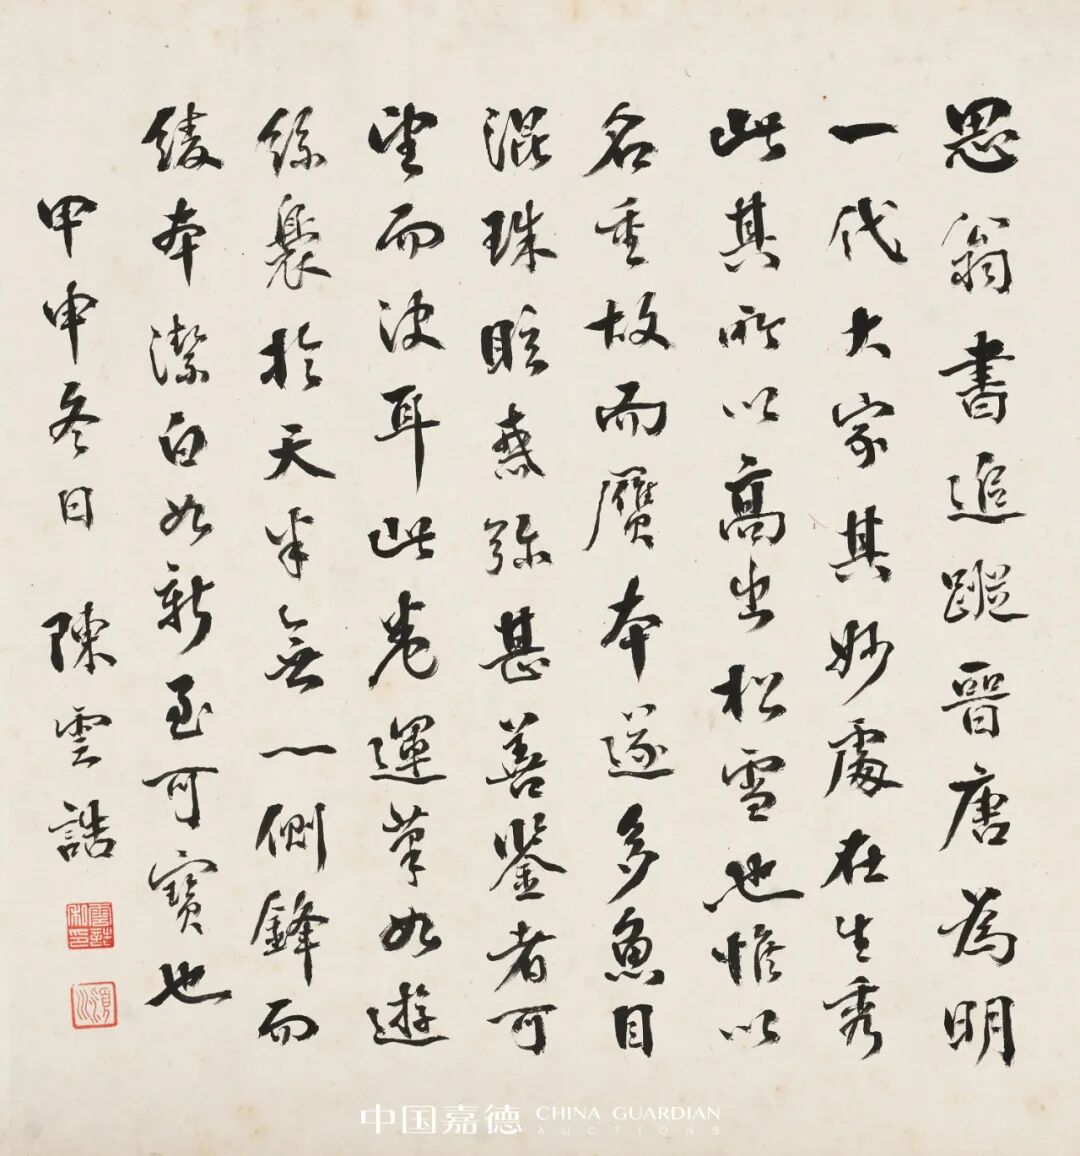 思翁書追蹤晉唐為明
一代大家其妙處在生秀
此其所以高出松雪也惟以
名重故而贋本遂多魚目
混珠眩惑弥甚善鑒者可
望而決耳此卷運筆如遊
絲裊於天半無一側鋒而
綾本潔白如新至可寶也
甲申冬日 陳雲誥
雲誥私印
中国嘉德 CHINA GUARDIAN
AUCTIONS